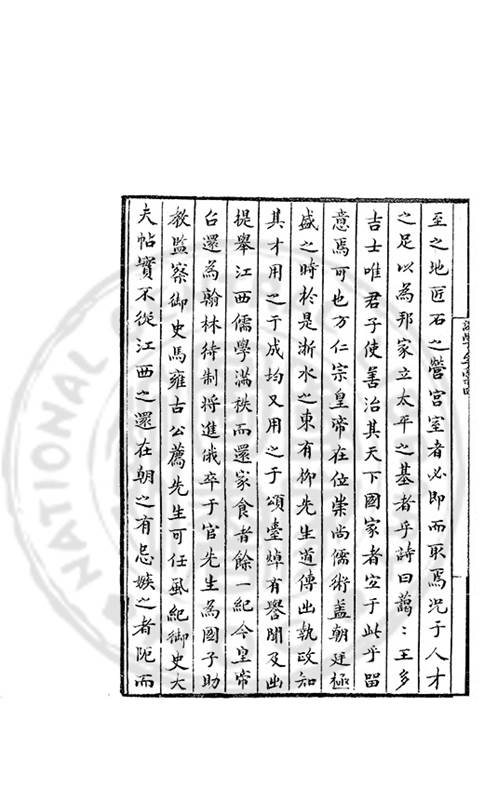 至之地匠石之營宫室者必即而取焉况于人才
之足以為邦家立太平之基者乎詩曰藹〻王多
吉士唯君子使善治其天下國家者宜于此乎留
意焉可也方仁宗皇帝在位崇尚儒術盖朝廷極
盛之時於是浙水之東有柳先生道傳出執政知
其才用之于成均又用之于頌臺焯有譽聞及出
提舉江西儒學滿秩而還家食者餘一紀今皇帝
召還為翰林待制將進俄卒于官先生為國子助
教監察御史馬雍古公薦先生可任風紀御史大
夫帖實不從江西之還在朝之有忌嫉之者阨而
NATIONAL CENTRAL